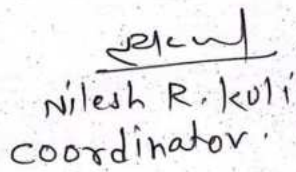 Nilesh R. Koli
Coordinator.